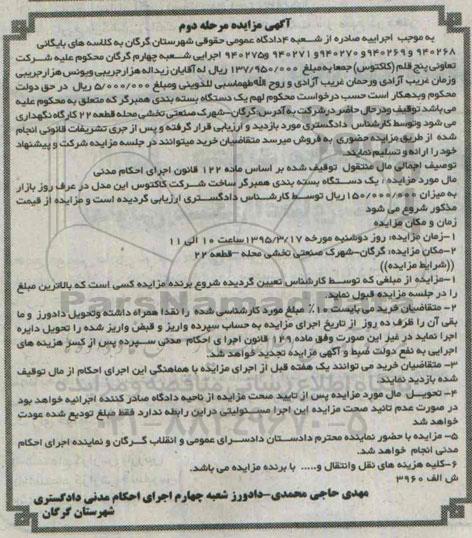 آگهی مزایده مرحله دوم
به موجب اجراییه صادره از شعبه ۴دادگاه عمومی حقوقی شهرستان گرگان به کلاسه های بایگانی
۹۴۰۲۶۸ و ۹۴۰۲۶۹ و ۹۴۰۲۷۰ و ۹۴۰۲۷۱ و ۹۴۰۲۷۵ اجرایی شعبه چهارم گرگان محکوم علیه شرکت
تعاونی پنج قلم (کاکتوس) جمعا به مبلغ ۱۳۷/۹۵۰/۰۰۰ ریال له آقایان زیداله هزارجریبی ویونس هزارجریبی
وزمان غریب آزادی ورحمان غریب آزادی و روح الله طهماسبی للدوینی ومبلغ ۵/۰۰۰/۰۰۰ ریال در حق دولت
محکوم وبدهکار است حسب درخواست محکوم لهم یک دستگاه بسته بندی همبرگر که متعلق به محکوم علیه
می باشد توقیف ودر حال حاضر در شرکت به آدرس گرگان-شهرک صنعتی نخشی محله قطعه ۲۲ کارگاه نگهداری
می شود وتوسط کارشناس دادگستری مورد بازدید و ارزیابی قرار گرفته و پس از جری تشریفات قانونی انجام
شده از طریق مزایده حضوری به فروش میرسد متقاضیان خرید میتوانند در جلسه مزایده شرکت و پیشنهاد
خود را ارائه و تسلیم نمایند.
توصیف اجمالی مال منتقول توقیف شده بر اساس ماده ۱۲۲ قانون اجرای احکام مدنی
مال مورد مزایده : یک دستگاه بسته بندی همبرگر ساخت شرکت کاکتوس این مدل در عرف روز بازار
به میزان ۱۵۰/۰۰۰/۰۰۰ ریال توسط کارشناس دادگستری ارزیابی گردیده است و مزایده از قیمت
مذکور شروع می شود
زمان و مکان مزایده
۱-زمان مزایده: روز دوشنبه مورخه ۱۳۹۵/۳/۱۷ ساعت ۱۰ الی ۱۱
۲-مکان مزایده: گرگان-شهرک صنعتی نخشی محله -قطعه ۲۲
((شرایط مزایده))
۱-مزایده از مبلغی که توسط کارشناس تعیین گردیده شروع برنده مزایده کسی است که بالاترین مبلغ
را در جلسه مزایده قبول نماید.
۲- متقاضیان خرید می بایست ۱۰٪ مبلغ مورد کارشناسی شده را نقدا همراه داشته وتحویل دادورز و ما
بقی آن را ظرف ده روز از تاریخ اجرای مزایده به حساب سپرده واریز و قبض واریز شده را تحویل دایره
اجرا نماید در غیر این صورت وفق ماده ۱۲۹ قانون اجرا ی احکام مدنی سپرده پس از کسر هزینه های
اجرایی به نفع دولت ضبط و آگهی مزایده تجدید خواهد شد.
۳- متقاضیان خرید می توانند یک هفته قبل از اجرای مزایده با هماهنگی این اجرای احکام از مال توقیف
شده بازدید نمایند.
۴-تحویل مال مورد مزایده پس از تایید صحت مزایده از ناحیه دادگاه صادر کننده اجرائیه خواهد بود
در صورت عدم تائید صحت مزایده این اجرا مسئولیتی دراین رابطه ندارد فقط مبلغ تودیع شده عودت
خواهد شد
۵- مزایده با حضور نماینده محترم دادستان دادسرای عمومی و انقلاب گرگان و نماینده اجرای احکام
مدنی انجام خواهد شد.
۶-کلیه هزینه های نقل وانتقال و..... با برنده مزایده می باشد.
ش الف ۳۹۶۰
مهدی حاجی محمدی-دادورز شعبه چهارم اجرای احکام مدنی دادگستری
شهرستان گرگان
ParsNamadData
۰۲۱-۸۸۳۴۹۶۷۰-۵